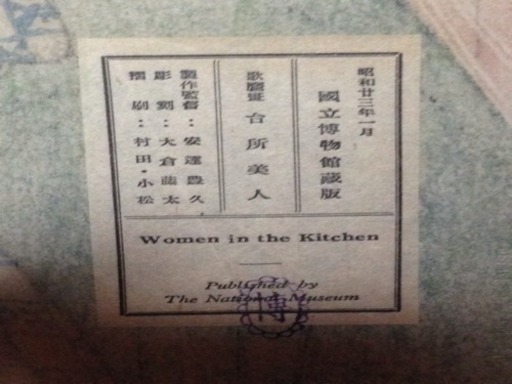 昭和廿三年一月
國立博物館藏版
歌麿筆 台所美人
製作監督：安達豊久
彫刻：大倉藤太
摺刷：村田・小松
Women in the Kitchen
Published by
The National Museum
博